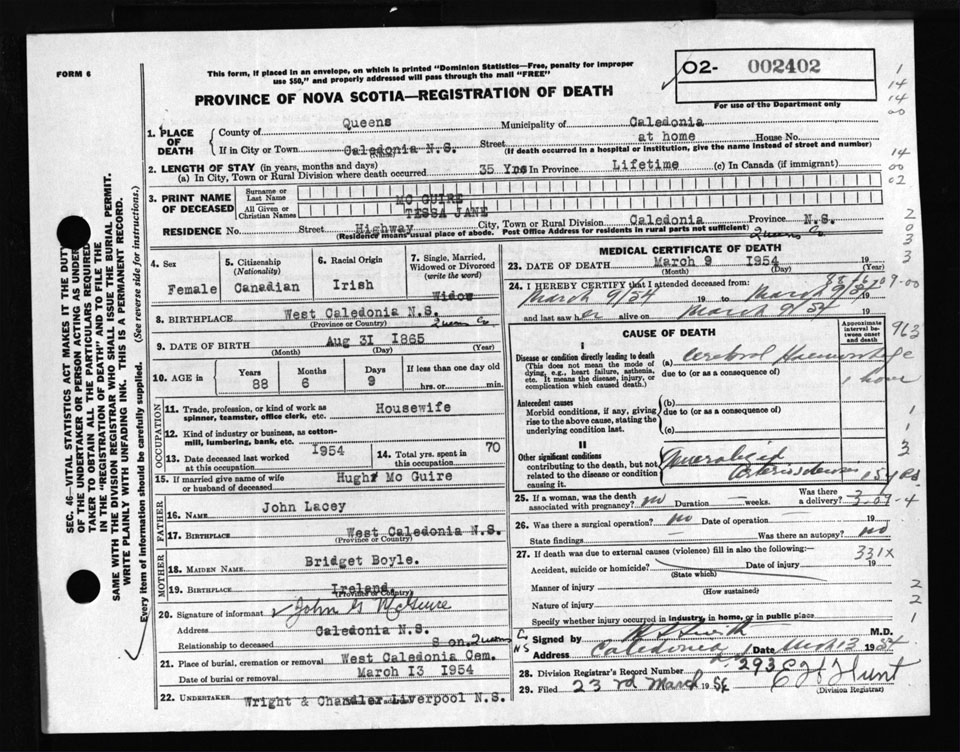 FORM 6
This form, if placed in an envelope, on which is printed "Dominion Statistics—Free, penalty for improper
use $50," and properly addressed will pass through the mail "FREE"
02- 002402
For use of the Department only
PROVINCE OF NOVA SCOTIA—REGISTRATION OF DEATH
SEC. 46—VITAL STATISTICS ACT MAKES IT THE DUTY
OF THE UNDERTAKER OR PERSON ACTING AS UNDER
TAKER TO OBTAIN ALL THE PARTICULARS REQUIRED
IN THE "REGISTRATION OF DEATH" AND TO FILE THE
SAME WITH THE DIVISION REGISTRAR WHO SHALL ISSUE THE BURIAL PERMIT.
WRITE PLAINLY WITH UNFADING INK. THIS IS A PERMANENT RECORD.
Every item of information should be carefully supplied. (See reverse side for instructions.)
1. PLACE OF DEATH
County of Queens Municipality of Caledonia
If in City or Town Caledonia N.S. Street at home House No.
(Name) (If death occurred in a hospital or institution, give the name instead of street and number)
2. LENGTH OF STAY (in years, months and days)
(a) In City, Town or Rural Division where death occurred 35 Yrs In Province Lifetime (c) In Canada (if immigrant)
3. PRINT NAME OF DECEASED
Surname or Last Name MC GUIRE
All Given or Christian Names TESSA JANE
RESIDENCE No. Street Highway City, Town or Rural Division Caledonia Province N.S.
(Residence means usual place of abode. Post Office Address for residents in rural parts not sufficient) Queens Co
4. Sex
Female
5. Citizenship (Nationality)
Canadian
6. Racial Origin
Irish
7. Single, Married, Widowed or Divorced (write the word)
Widow
8. BIRTHPLACE West Caledonia N.S.
(Province or Country) Queens Co
9. DATE OF BIRTH Aug 31 1865
(Month) (Day) (Year)
10. AGE in Years Months Days If less than one day old
88 6 9 hrs. or min.
OCCUPATION
11. Trade, profession, or kind of work as spinner, teamster, office clerk, etc. Housewife
12. Kind of industry or business, as cotton-mill, lumbering, bank, etc.
13. Date deceased last worked at this occupation 1954
14. Total yrs. spent in this occupation 70
15. If married give name of wife or husband of deceased Hugh Mc Guire
FATHER
16. NAME John Lacey
17. BIRTHPLACE West Caledonia N.S.
(Province or Country)
MOTHER
18. MAIDEN NAME Bridget Boyle.
19. BIRTHPLACE Ireland
(Province or Country)
20. Signature of informant John G McGuire
Address Caledonia N.S.
Relationship to deceased Son Queens Co
21. Place of burial, cremation or removal West Caledonia Cem.
Date of burial or removal March 13 1954
22. UNDERTAKER Wright & Chandler Liverpool N.S.
MEDICAL CERTIFICATE OF DEATH
23. DATE OF DEATH March 9 1954
(Month) (Day) (Year)
24. I HEREBY CERTIFY that I attended deceased from:
March 9/54 19 to March 9/54 19
and last saw her alive on March 9/54 19
CAUSE OF DEATH
Approximate interval between onset and death
I
Disease or condition directly leading to death
(This does not mean the mode of dying, e.g., heart failure, asthenia, etc. It means the disease, injury, or complication which caused death.)
(a) Cerebral Haemorrhage
due to (or as a consequence of) 1 hour
Antecedent causes
Morbid conditions, if any, giving rise to the above cause, stating the underlying condition last.
(b)
due to (or as a consequence of)
(c)
II
Other significant conditions
contributing to the death, but not related to the disease or condition causing it.
25. If a woman, was the death associated with pregnancy? no Duration weeks. Was there a delivery?
26. Was there a surgical operation? no Date of operation 19
State findings Was there an autopsy? no
27. If death was due to external causes (violence) fill in also the following:—
331X
Accident, suicide or homicide? Date of injury 19
(State which)
Manner of injury
(How sustained)
Nature of injury
Specify whether injury occurred in industry, in home, or in public place
Signed by M.D.
Address Caledonia Date March 13 1954
28. Division Registrar's Record Number 293
29. Filed 23rd March 1954 E H Hunt
(Division Registrar)
1
14
14
00
14
00
02
2
0
3
3
9-00
963
1
1
3
2
2
1